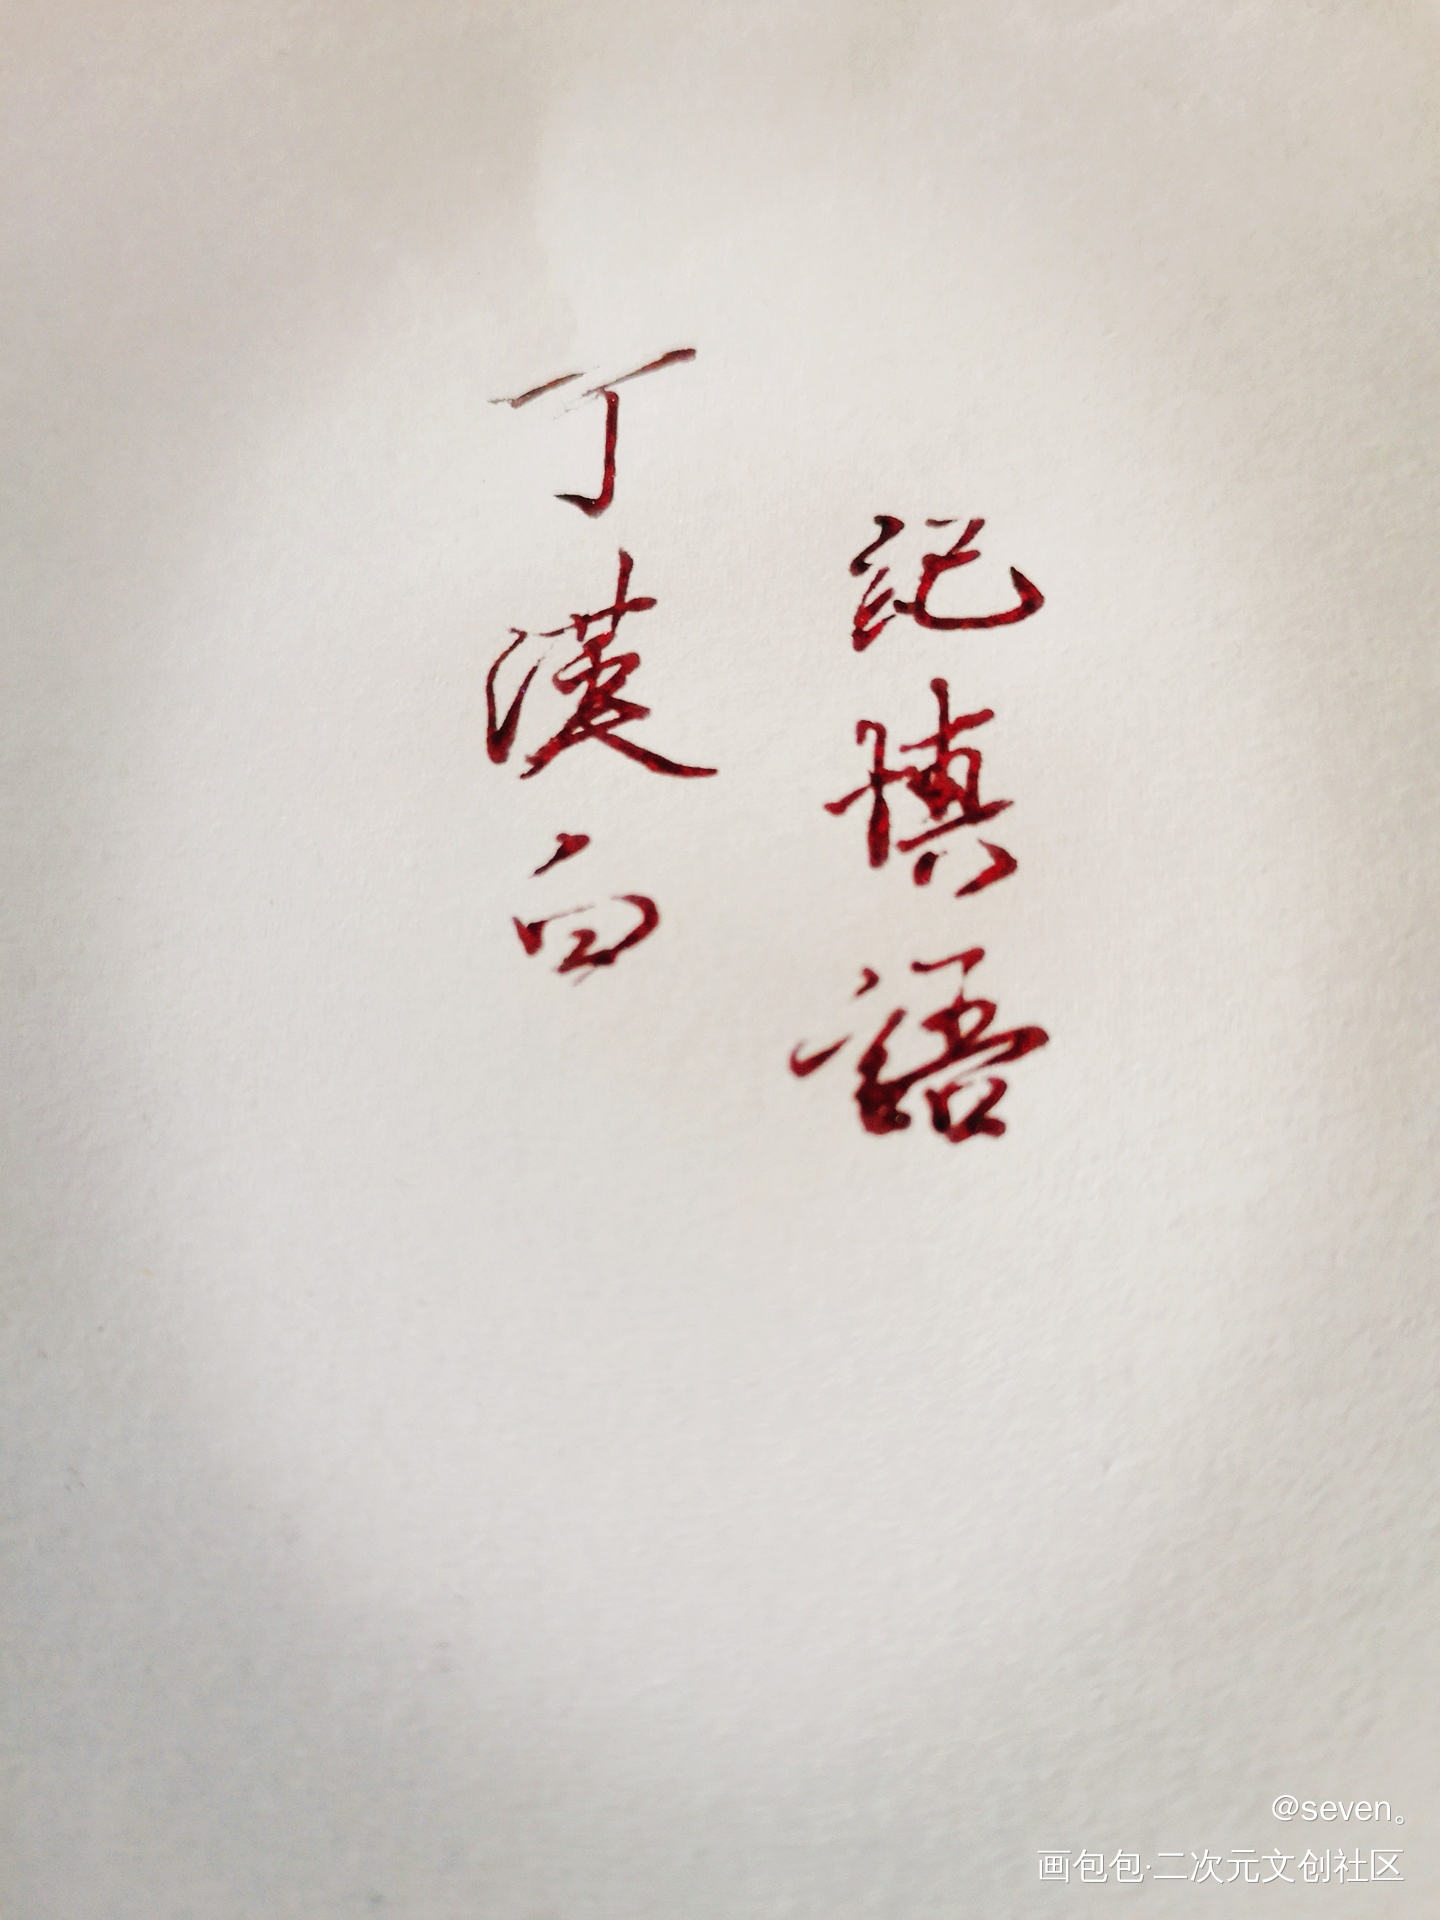 紀慎語
丁漢白
@seven。
画包包·二次元文创社区